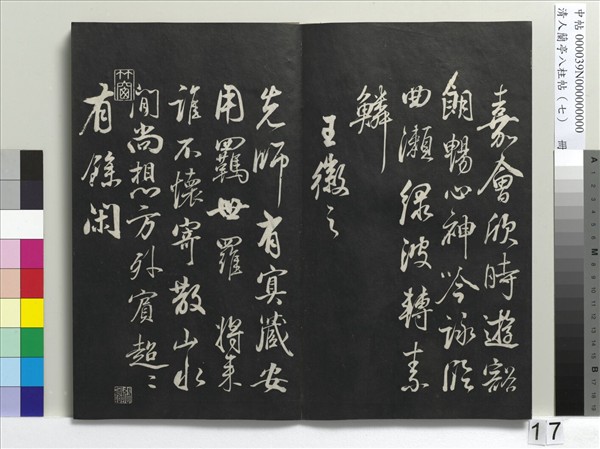 中帖 000039N000000000 冊
清人蘭亭八柱帖（七）
嘉會欣時遊豁
朗暢心神吟詠臨
曲瀨綠波轉素
鱗
王徽之
先師有冥藏安
用羈世羅 將來
誰不懷寄散山水
間尚想方外賓超〻
有餘閑
17